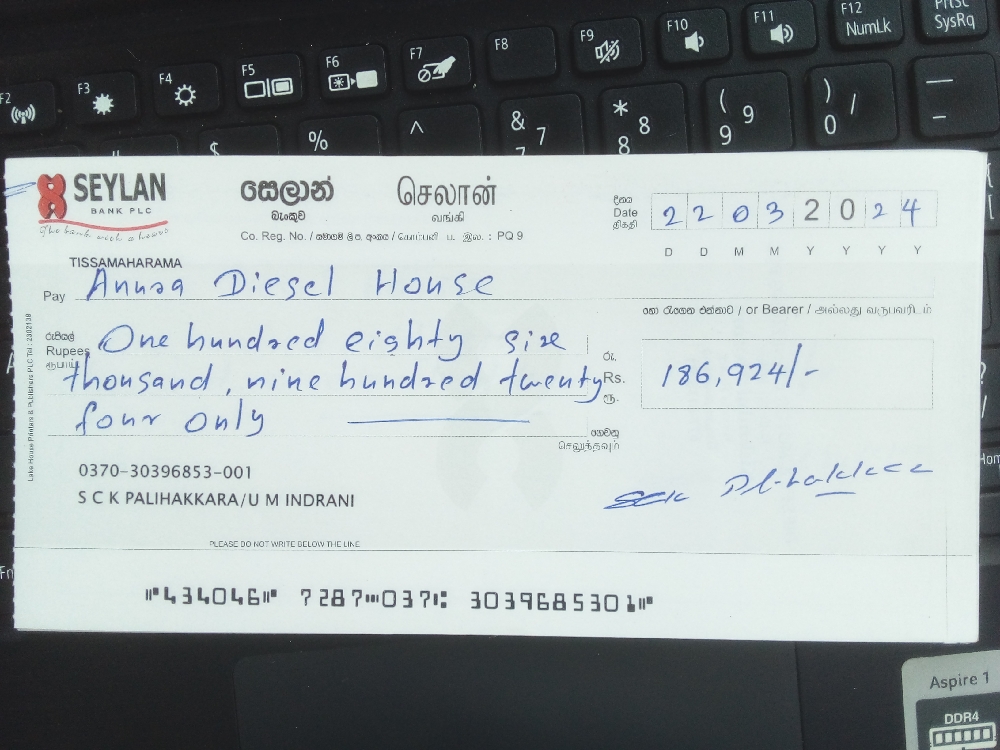 F2 F3 F4 F5 F6 F7 F8 F9 F10 F11 F12 NumLk PrtSc SysRq
$ % ^ & 7 7 * 8 8 ( 9 9 ) 0 / — –
SEYLAN
BANK PLC
සෙලාන්
බැංකුව
செலான்
வங்கி
Co. Reg. No. / සමාගම් ලි.ප. අංකය / கொம்பனி ப. இல. : PQ 9
දිනය
Date
திகதி
22 03 2024
D D M M Y Y Y Y
TISSAMAHARAMA
Pay Anura Diesel House
හෝ රැගෙන එන්නාට / or Bearer / அல்லது வருபவரிடம்
රුපියල්
Rupees
ரூபாய்
One hundred eighty six
thousand, nine hundred twenty
four only
රු.
Rs.
ரூ.
186,924/-
ගෙවනු
செலுத்தவும்
Lake House Printers & Publishers PLC Tel : 2302138
0370-30396853-001
S C K PALIHAKKARA/U M INDRANI
PLEASE DO NOT WRITE BELOW THE LINE
⑈434046⑈ 7287⑉037⑆ 3039685301⑈
Aspire 1
DDR4